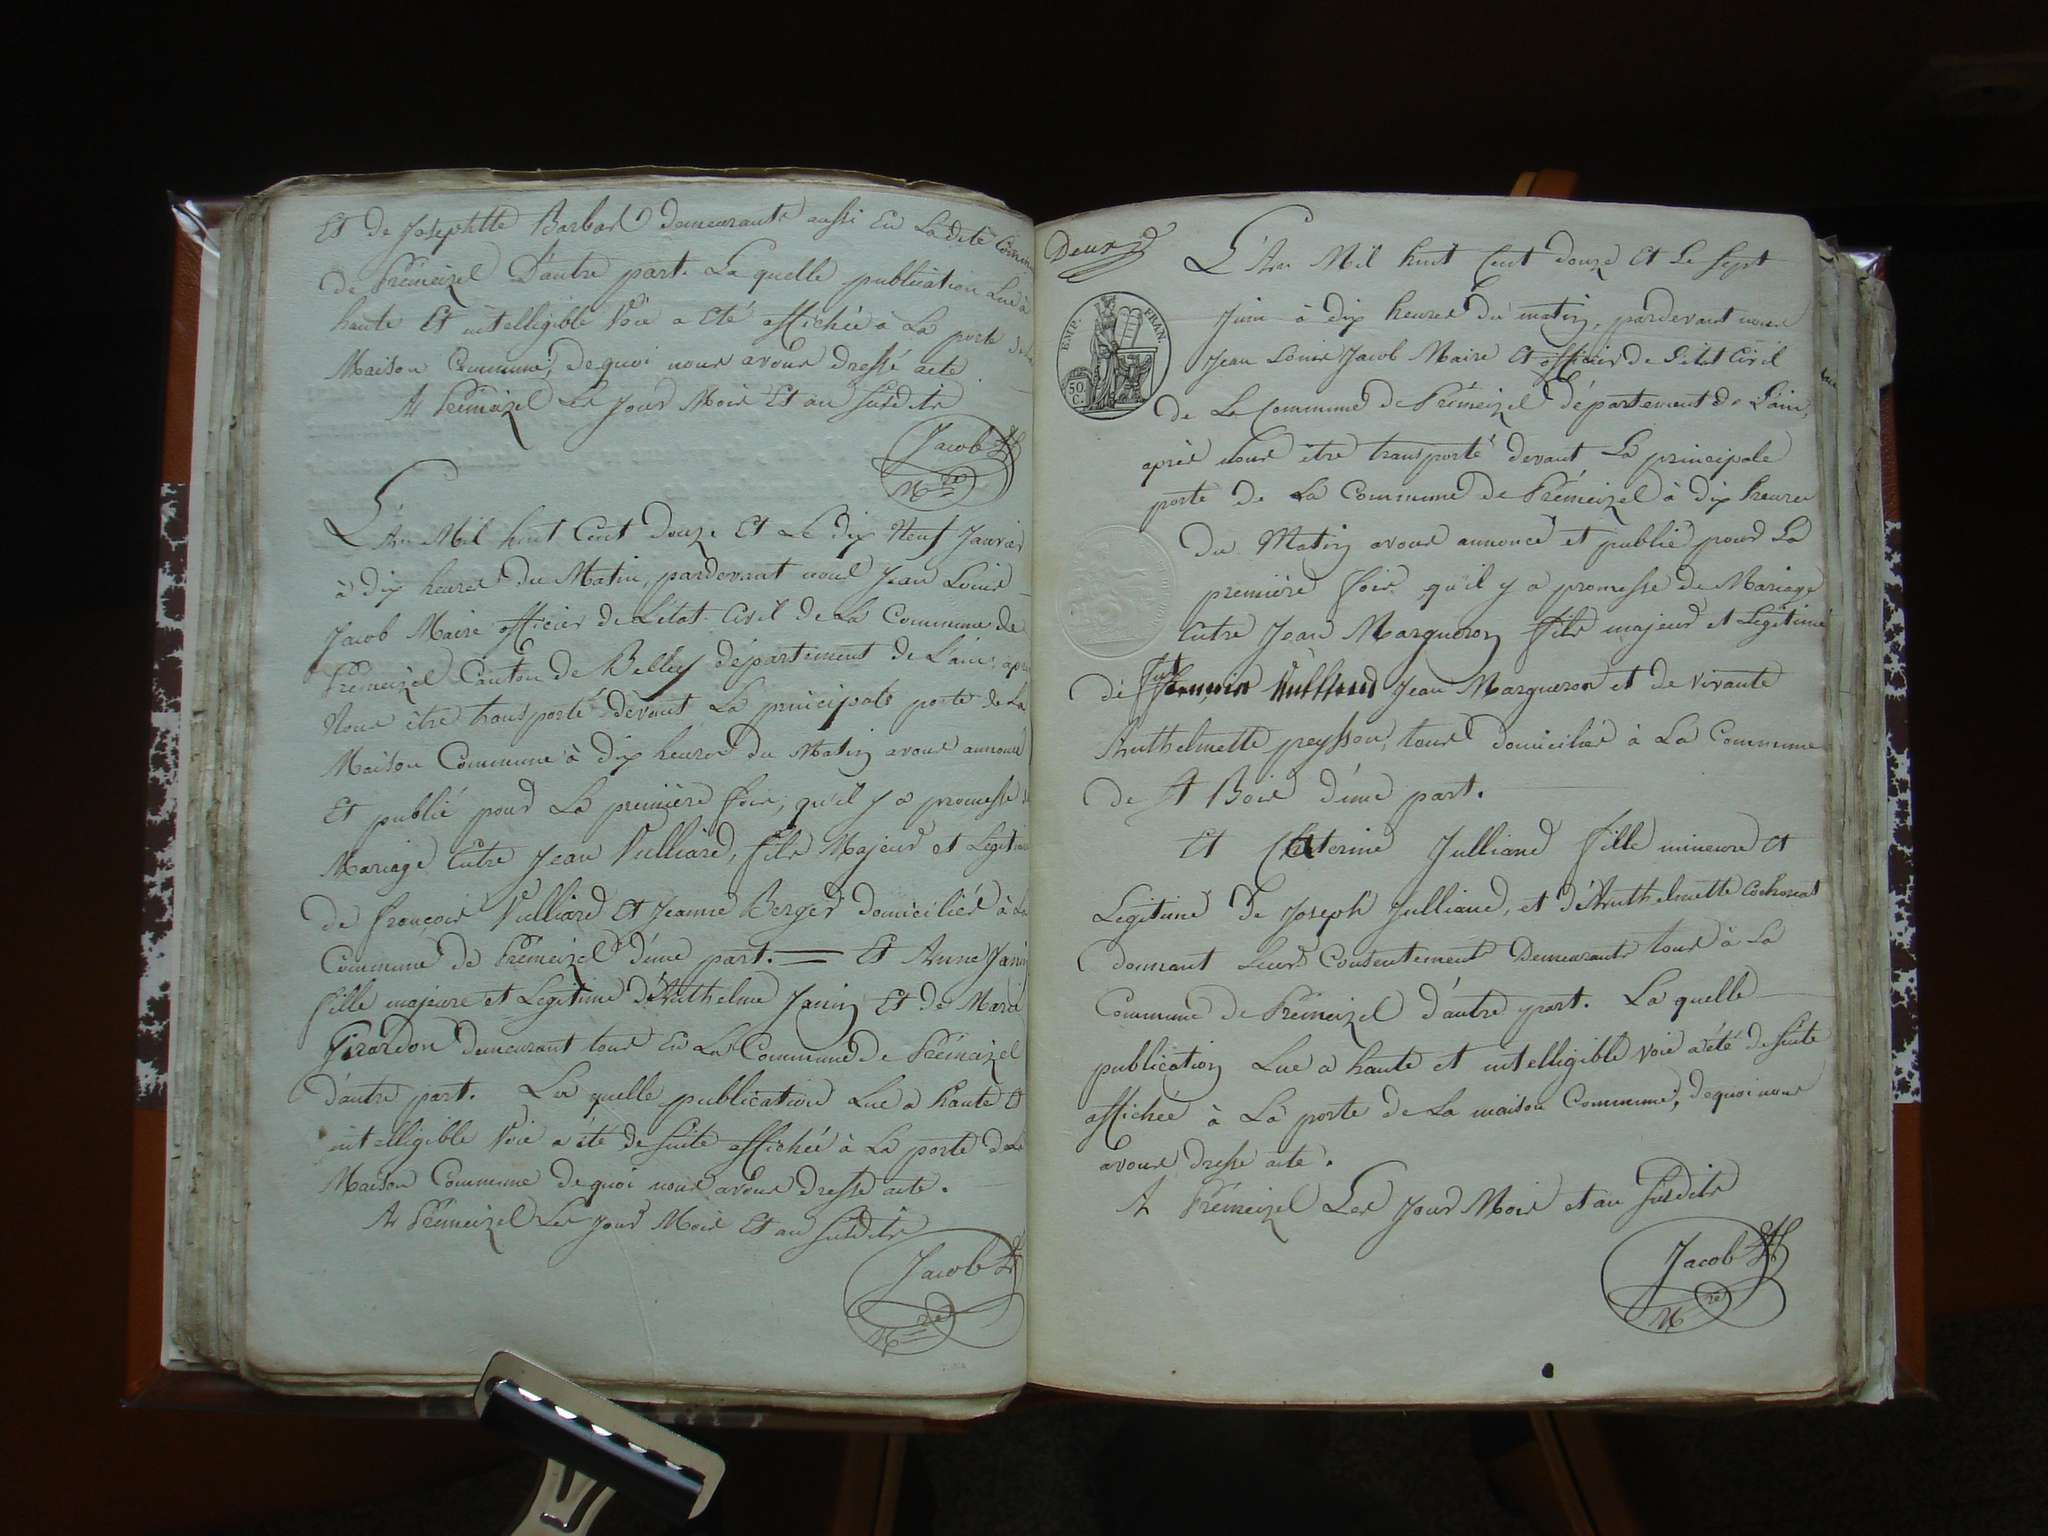 Et de Josephtte Barbar demeurante aussi En La dite Commune
de Prémeizel D'autre part. La quelle publication Lue à
haute Et intelligible Voie a Eté affichée a La porte de La
Maison Commune, de quoi nous avons dressé acte
A Prémeizel Les Jour Mois Et an Susdits
Jacob
M.re
L'An Mil huit Cent Douze Et Le dix Neuf Janvier
à dix heures du Matin, pardevant nous Jean Louis
Jacob Maire officier de L'etat Civil de La Commune de
Prémeizel Canton de Belley département de L'ain, après
Nous être transporté devant La principale porte de La
Maison Commune à dix heures du Matin avons annoncé
Et publié pour La première fois, qu'il y a promesse de
Mariage Entre Jean Vulliard, fils Majeur et Legitime
de françois Vulliard Et Jeanne Berger domiciliés à La
Commune de Prémeizel d'une part. — Et Anne Janin
fille majeure et Legitime d'Anthelme Janin Et de Marie
Girardon demeurant tous En La Commune de Prémeizel
d'autre part. La quelle publication Lue a haute Et
intelligible Voie a été de Suite affichée à La porte de La
Maison Commune de quoi nous avons dressé acte.
A Prémeizel Les Jour Mois Et an Susdits
Jacob
M.re
Deux
L'An Mil huit Cent douze Et Le Sept
Juin à dix heures du matin, pardevant nous
Jean Louis Jacob Maire Et officier de L'etat Civil
de La Commune de Prémeizel département de L'ain,
après nous être transporté devant La principale
porte de La Commune de Prémeizel à dix heures
du Matin avons annoncé et publié pour La
première fois qu'il y a promesse de Mariage
Entre Jean Margueron fils majeur et Legitime
de Jean Margueron et de vivante
Anthelmette peysson, tous domiciliés à La Commune
de St Bois d'une part.
Et Catterine Julliand fille mineure Et
Legitime de Joseph Julliand, et d'Anthelmette Cochonat
donnant Leurs Consentements Demeurants tous à La
Commune de Prémeizel d'autre part. La quelle
publication Lue a haute et intelligible voie a été de Suite
affichée à La porte de La maison Commune, de quoi nous
avons dressé acte.
A Prémeizel Les Jour Mois et an Susdits
Jacob
M.re
EMP. FRAN.
50 C.